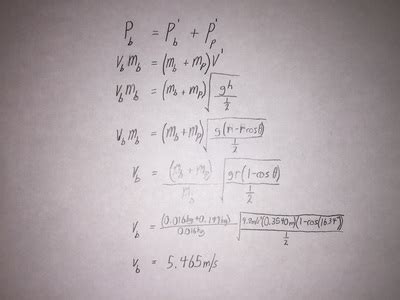 P_b = P_b' + P_p'
V_b m_b = (m_b + m_p) V'
V_b m_b = (m_b + m_p) √(gh / (1/2))
V_b m_b = (m_b + m_p) √(g(r-rcosθ) / (1/2))
V_b = (m_b + m_p) / m_b √(gr(1-cosθ) / (1/2))
V_b = (0.016kg+0.147kg) / 0.016kg √((9.8m/s²)(0.3540m)(1-cos(16.34°)) / (1/2))
V_b = 5.465m/s